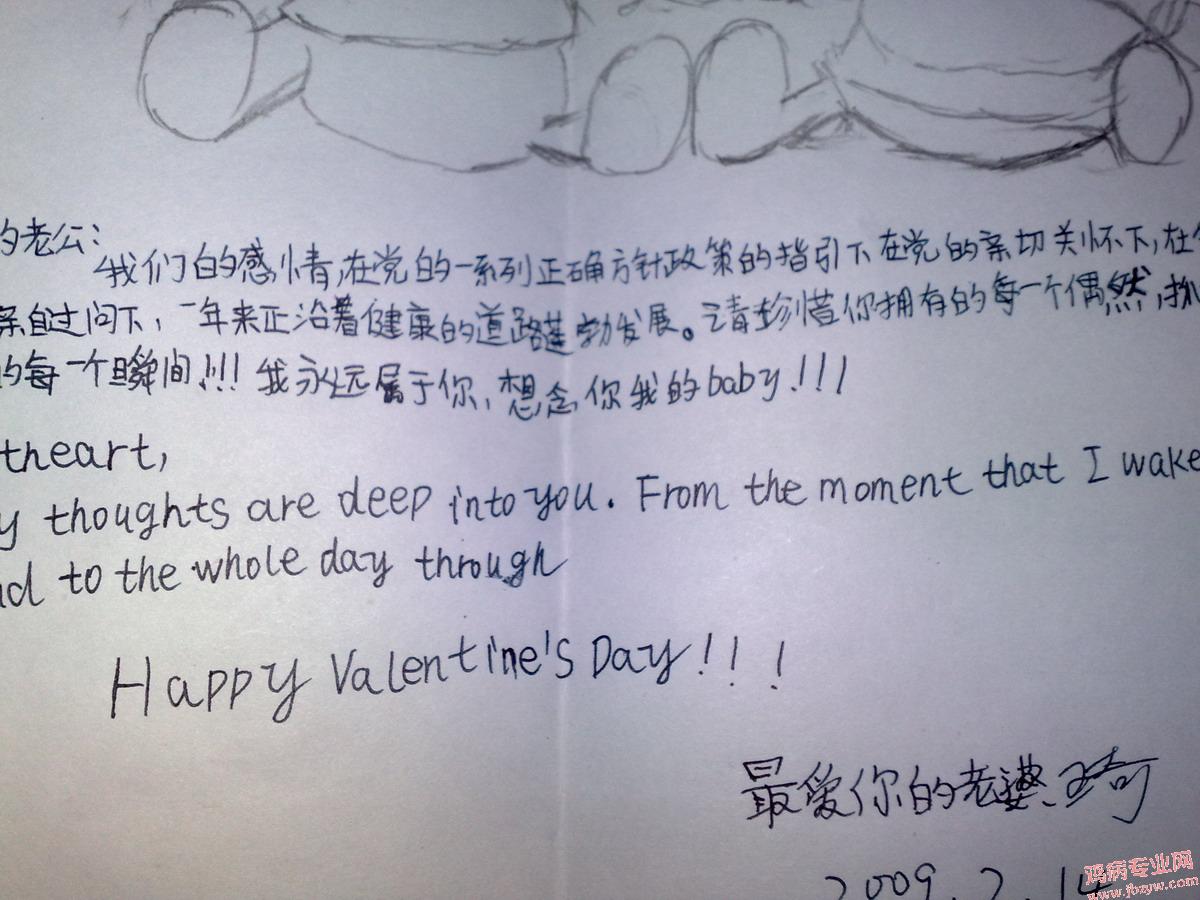 的老公:
我们的感情,在党的一系列正确方针政策的指引下在党的亲切关怀下,在
亲自过问下,一年来正沿着健康的道路蓬勃发展。请珍惜你拥有的每一个偶然,
的每一个瞬间!!!我永远属于你,想念你我的baby!!!
theart,
y thoughts are deep into you. From the moment that I wake
nd to the whole day through
Happy Valentine's Day!!!
最爱你的老婆、琦
2009.2.14
鸡病专业网
www.jbzyw.com